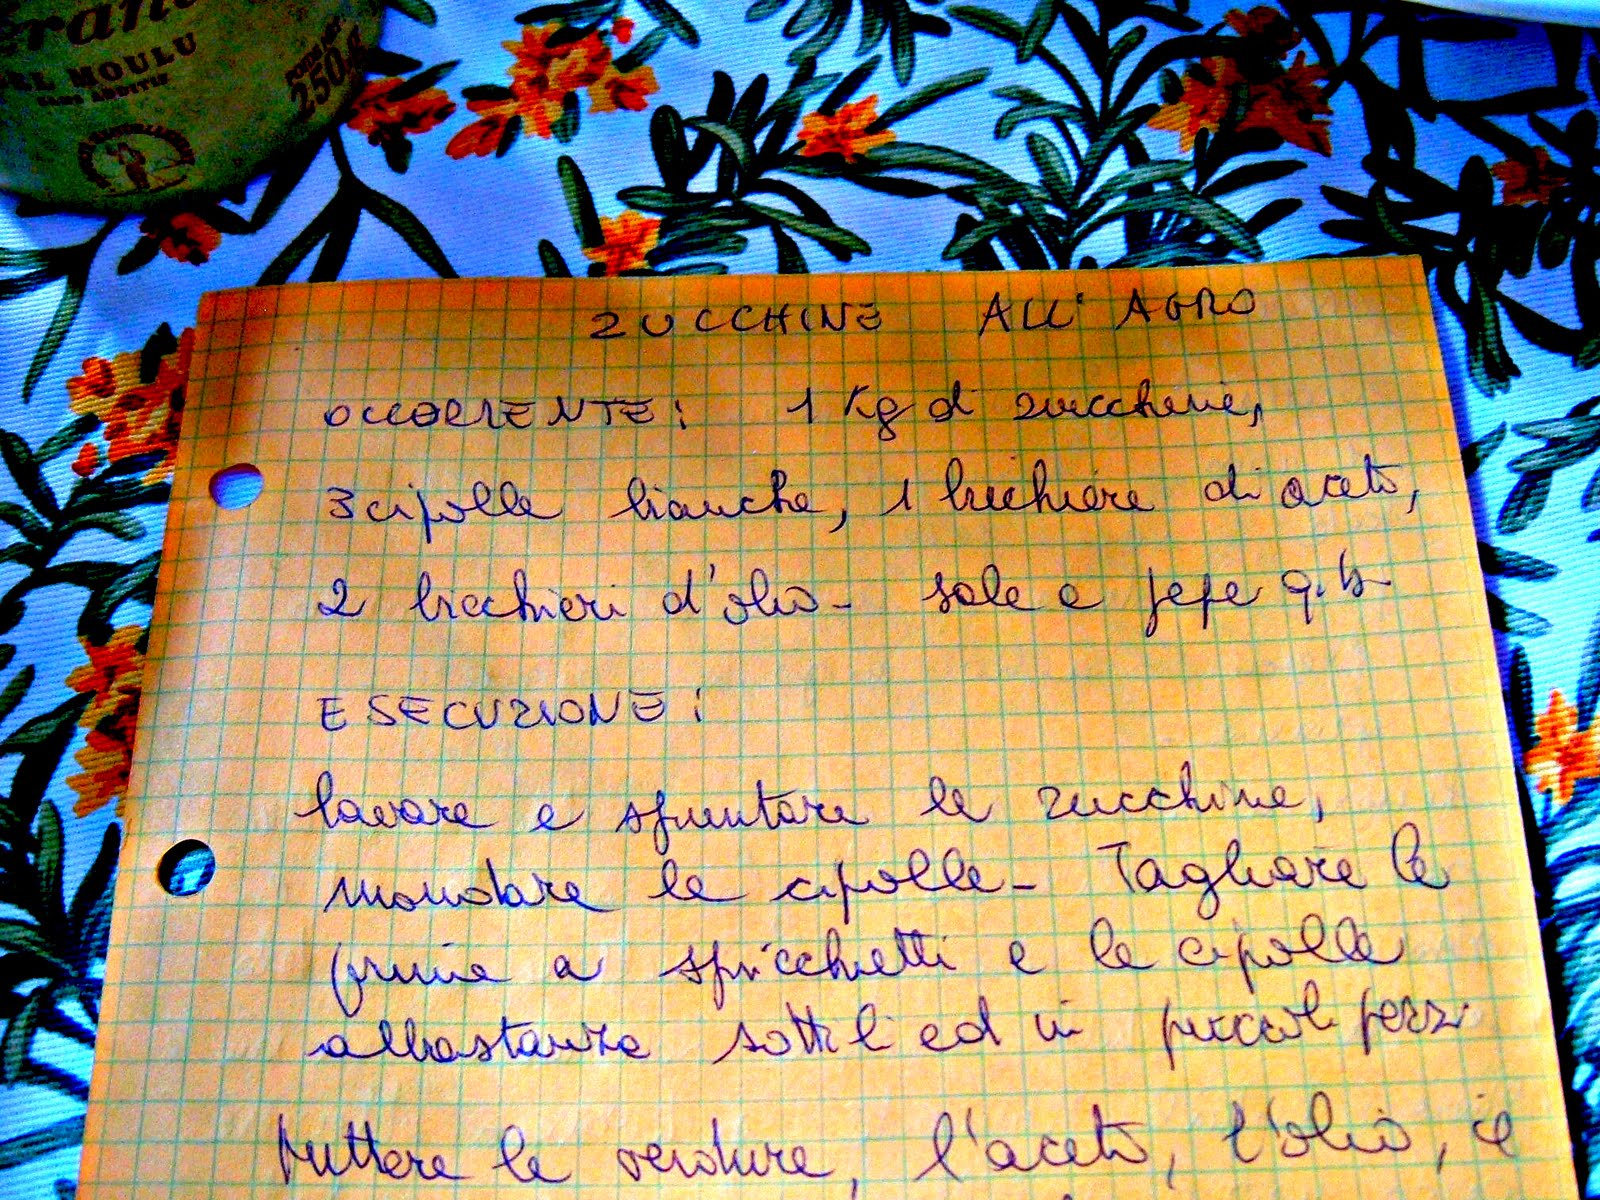 MOULU
250 g
ZUCCHINE ALL' AGRO
OCCORRENTE: 1 Kg di zucchine,
3 cipolle bianche, 1 bicchiere di aceto,
2 bicchieri d'olio - sale e pepe q.b-
ESECUZIONE:
lavare e spuntare le zucchine,
mondare le cipolle - Tagliare le
prime a spicchietti e le cipolle
abbastanza sottili ed in piccoli pezzi
Mettere le verdure, l'aceto, l'olio, il